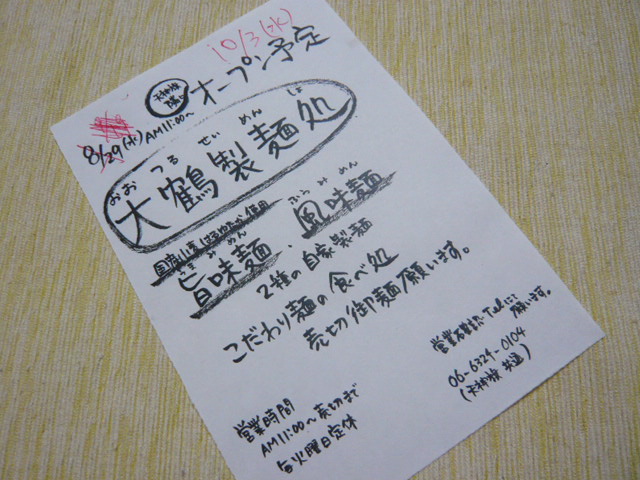 10/3(水)
天神旗
隣に
オープン予定
8/29(水)AM11:00〜
おおつるせいめんしょ
大鶴製麺処
国産小麦はるゆたか使用
うまみめん ふうみめん
旨味麺、風味麺
2種の自家製麺
こだわり麺の食べ処
売切御麺願います。
営業確認はTelにて
願います。
06-6324-0104
(天神旗 共通)
営業時間
AM11:00〜売切まで
毎火曜日定休